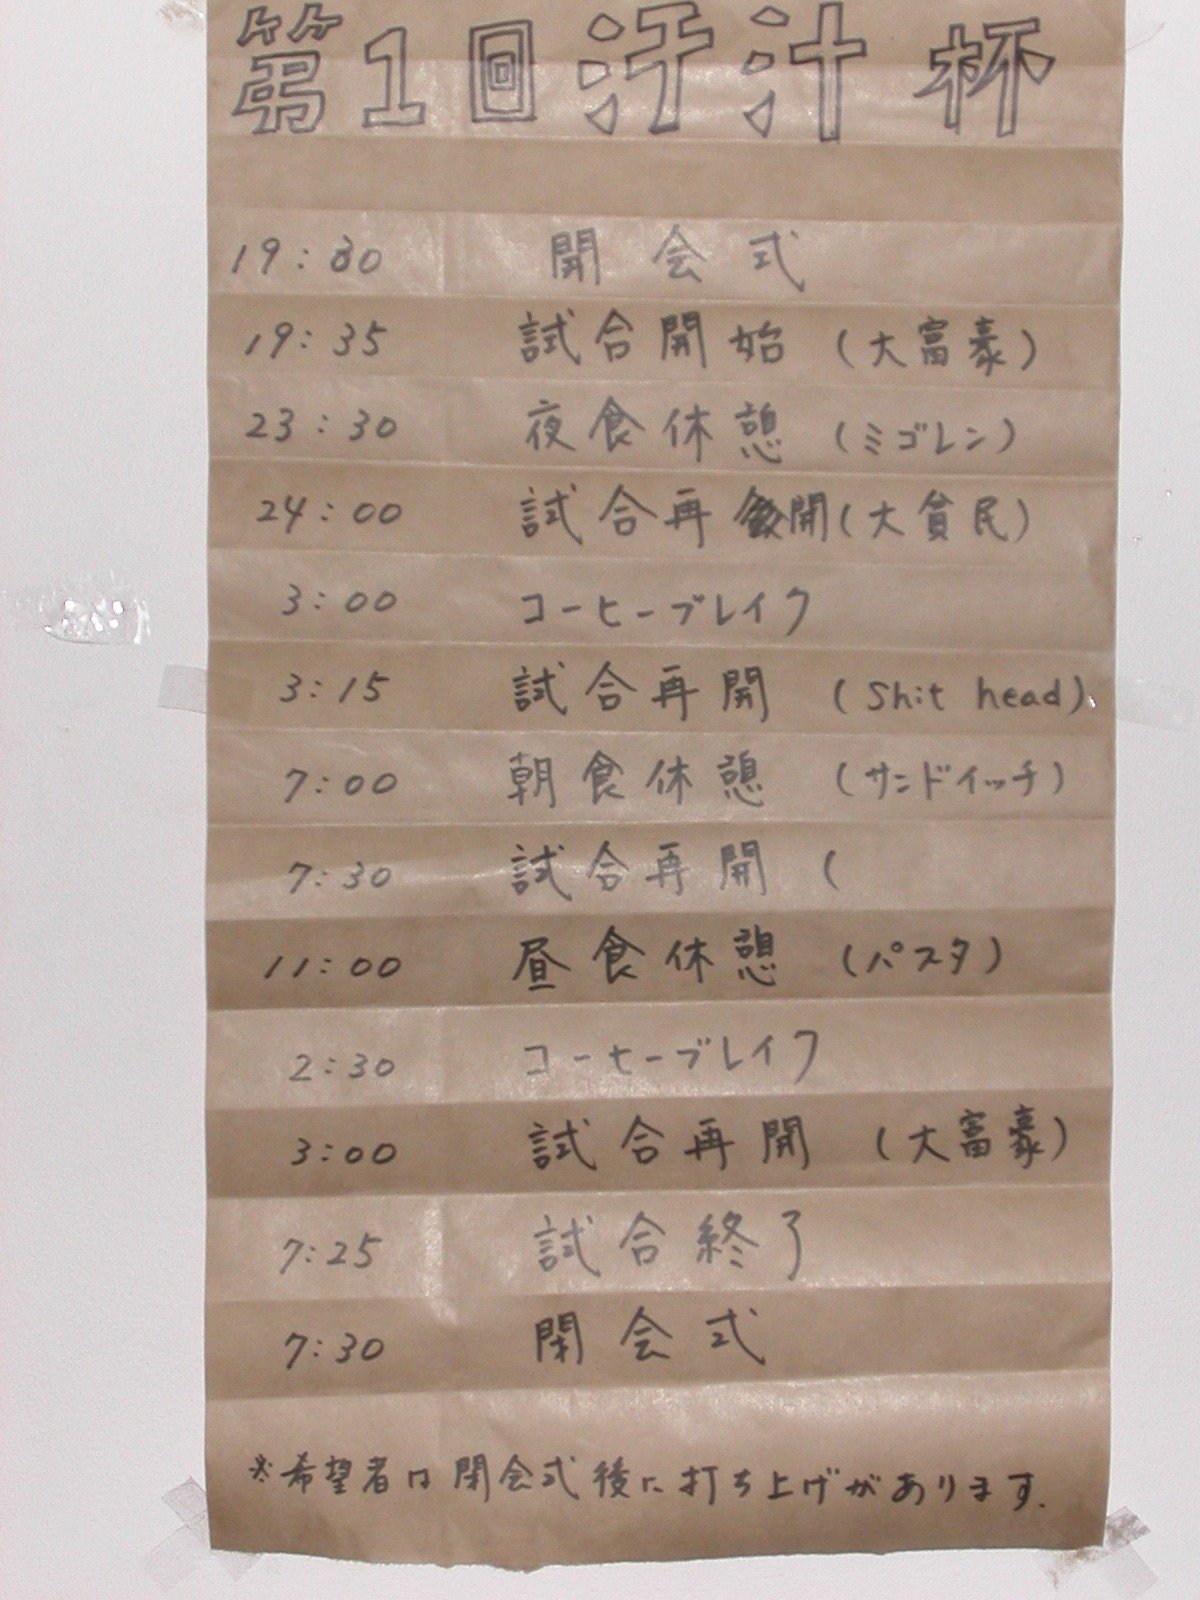 第1回汗汁杯
19:30 開会式
19:35 試合開始 (大富豪)
23:30 夜食休憩 (ミゴレン)
24:00 試合再開 (大貧民)
3:00 コーヒーブレイク
3:15 試合再開 (Shit head)
7:00 朝食休憩 (サンドイッチ)
7:30 試合再開 (
11:00 昼食休憩 (パスタ)
2:30 コーヒーブレイク
3:00 試合再開 (大富豪)
7:25 試合終了
7:30 閉会式
※希望者は閉会式後に打ち上げがあります.